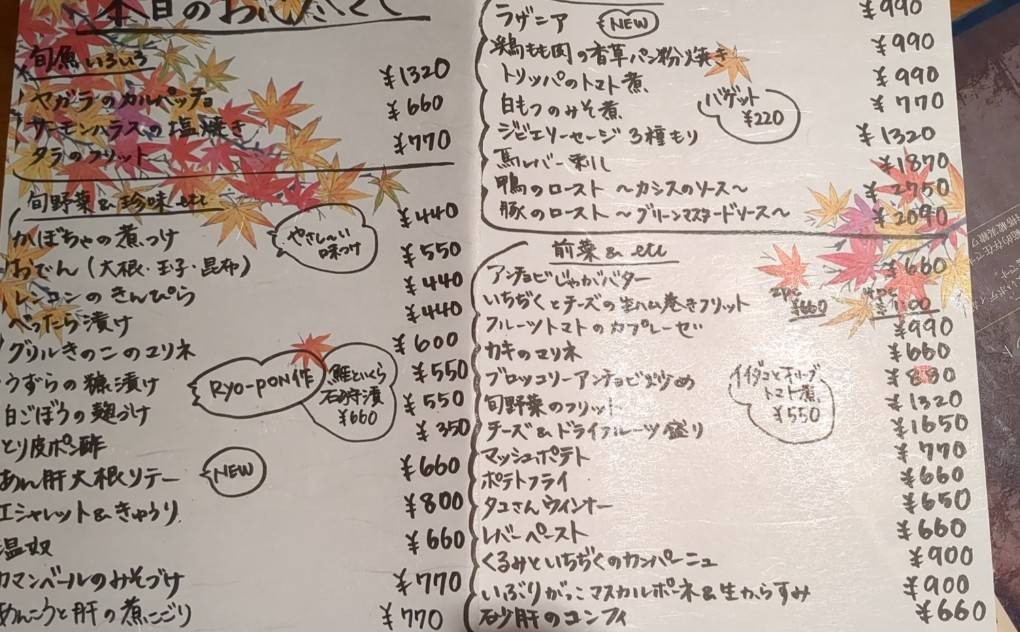 本日のおしながき
旬魚いろいろ
ヤガラのカルパッチョ ¥1320
サーモンハラスの塩焼き ¥660
タラのフリット ¥770
旬野菜&珍味 etc
かぼちゃの煮つけ ¥440
やさし〜い
味つけ
おでん(大根・玉子・昆布) ¥550
レンコンのきんぴら ¥440
べったら漬け ¥440
グリルきのこのマリネ ¥600
うずらの糠漬け ¥550
Ryo-pon作
白ごぼうの麹づけ ¥550
鮭といくら
石狩漬
¥660
とり皮ポン酢 ¥350
あん肝大根ソテー ¥660
NEW
エシャレット&きゅうり ¥800
温奴 ¥660
カマンベールのみそづけ ¥770
あんこうと肝の煮こごり ¥770
ラザニア ¥990
NEW
鶏もも肉の香草パン粉焼き ¥990
トリッパのトマト煮 ¥990
白もつのみそ煮 ¥770
バゲット
¥220
ジビエソーセージ 3種もり ¥1320
馬レバー刺し ¥1870
鴨のロースト 〜カシスのソース〜 ¥2750
豚のロースト 〜グリーンマスタードソース〜 ¥2090
前菜&etc
アンチョビじゃがバター ¥660
いちぢくとチーズの生ハム巻きフリット 2pc ¥660
フルーツトマトのカプレーゼ ¥990
カキのマリネ ¥660
ブロッコリーアンチョビ炒め ¥880
イイダコとオリーブ
トマト煮
¥550
旬野菜のフリット ¥1320
チーズ&ドライフルーツ盛り ¥1650
マッシュポテト ¥770
ポテトフライ ¥660
タコさんウインナー ¥650
レバーペースト ¥660
くるみといちぢくのカンパーニュ ¥900
いぶりがっこマスカルポーネ&生からすみ ¥900
砂肝のコンフィ ¥660